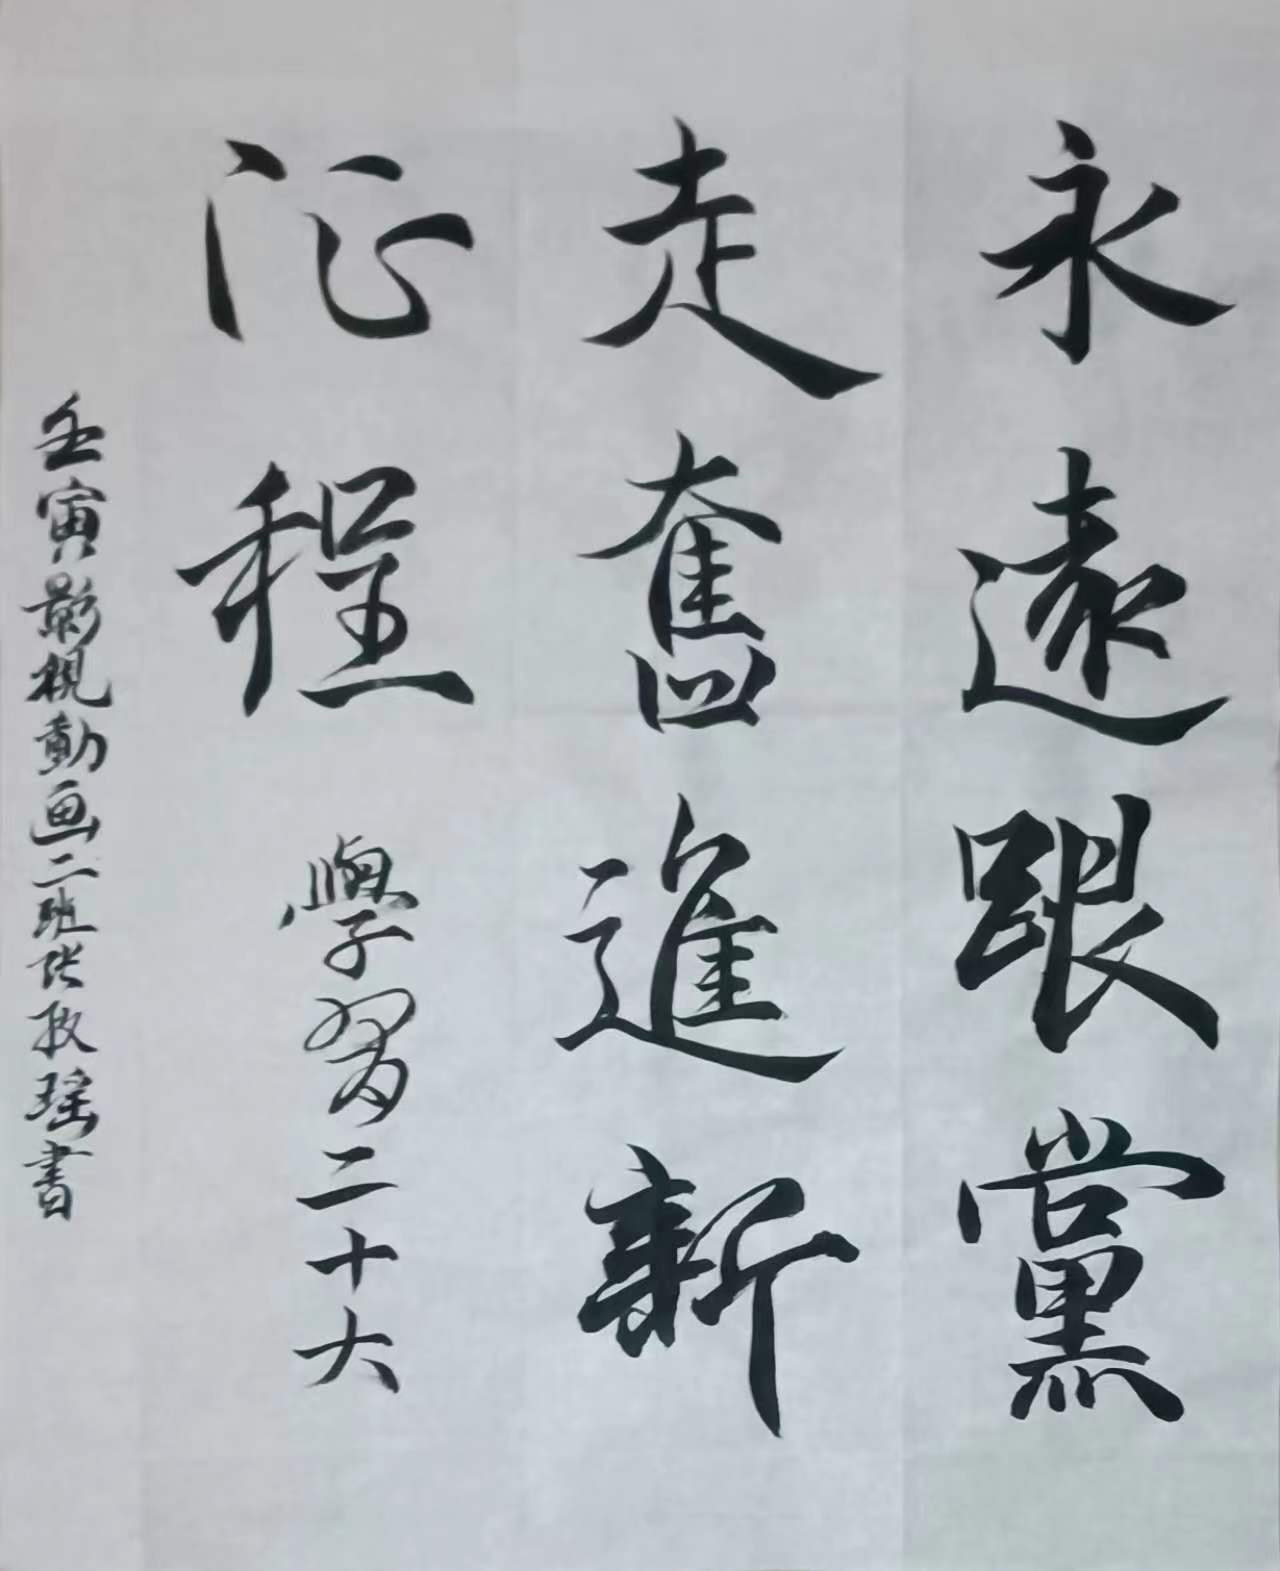 永遠跟黨
走奮進新
征程
學習二十大
壬寅影視動画二班张政瑶書